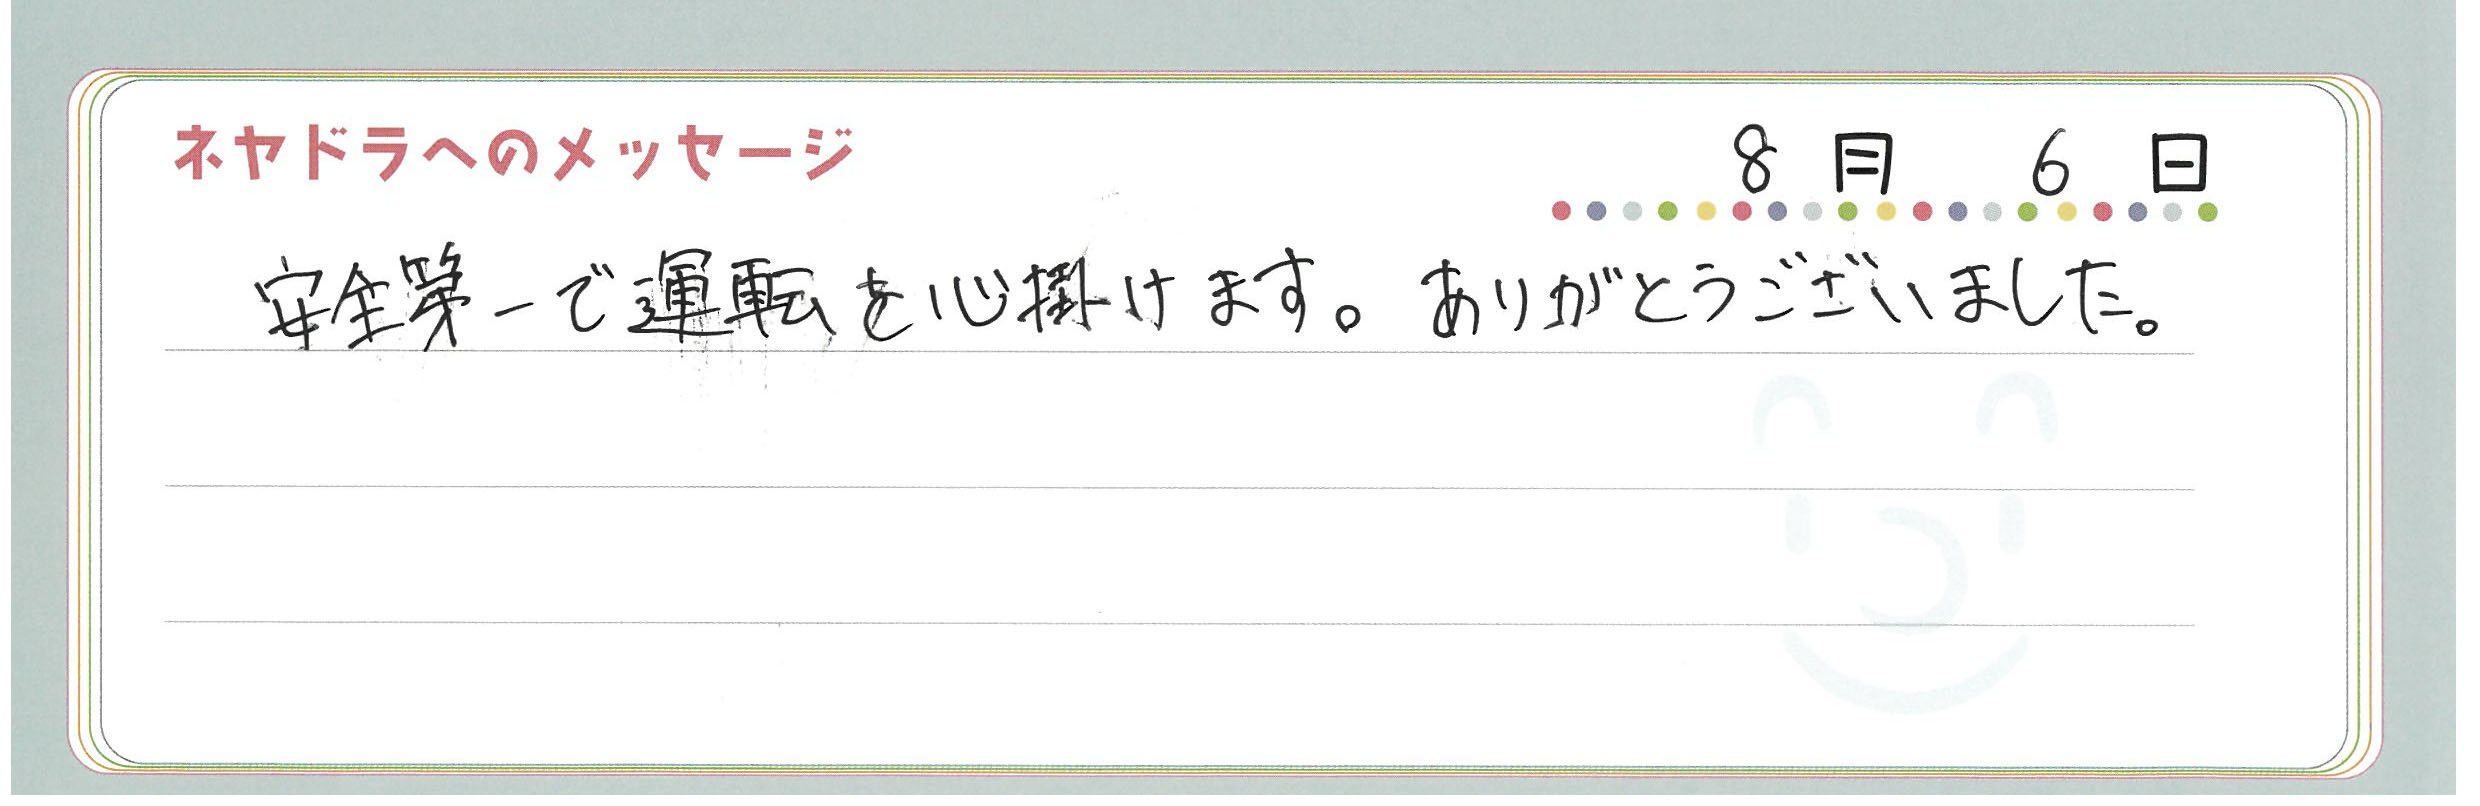 ネヤドラへのメッセージ 8月 6日
安全第一で運転を心掛けます。ありがとうございました。